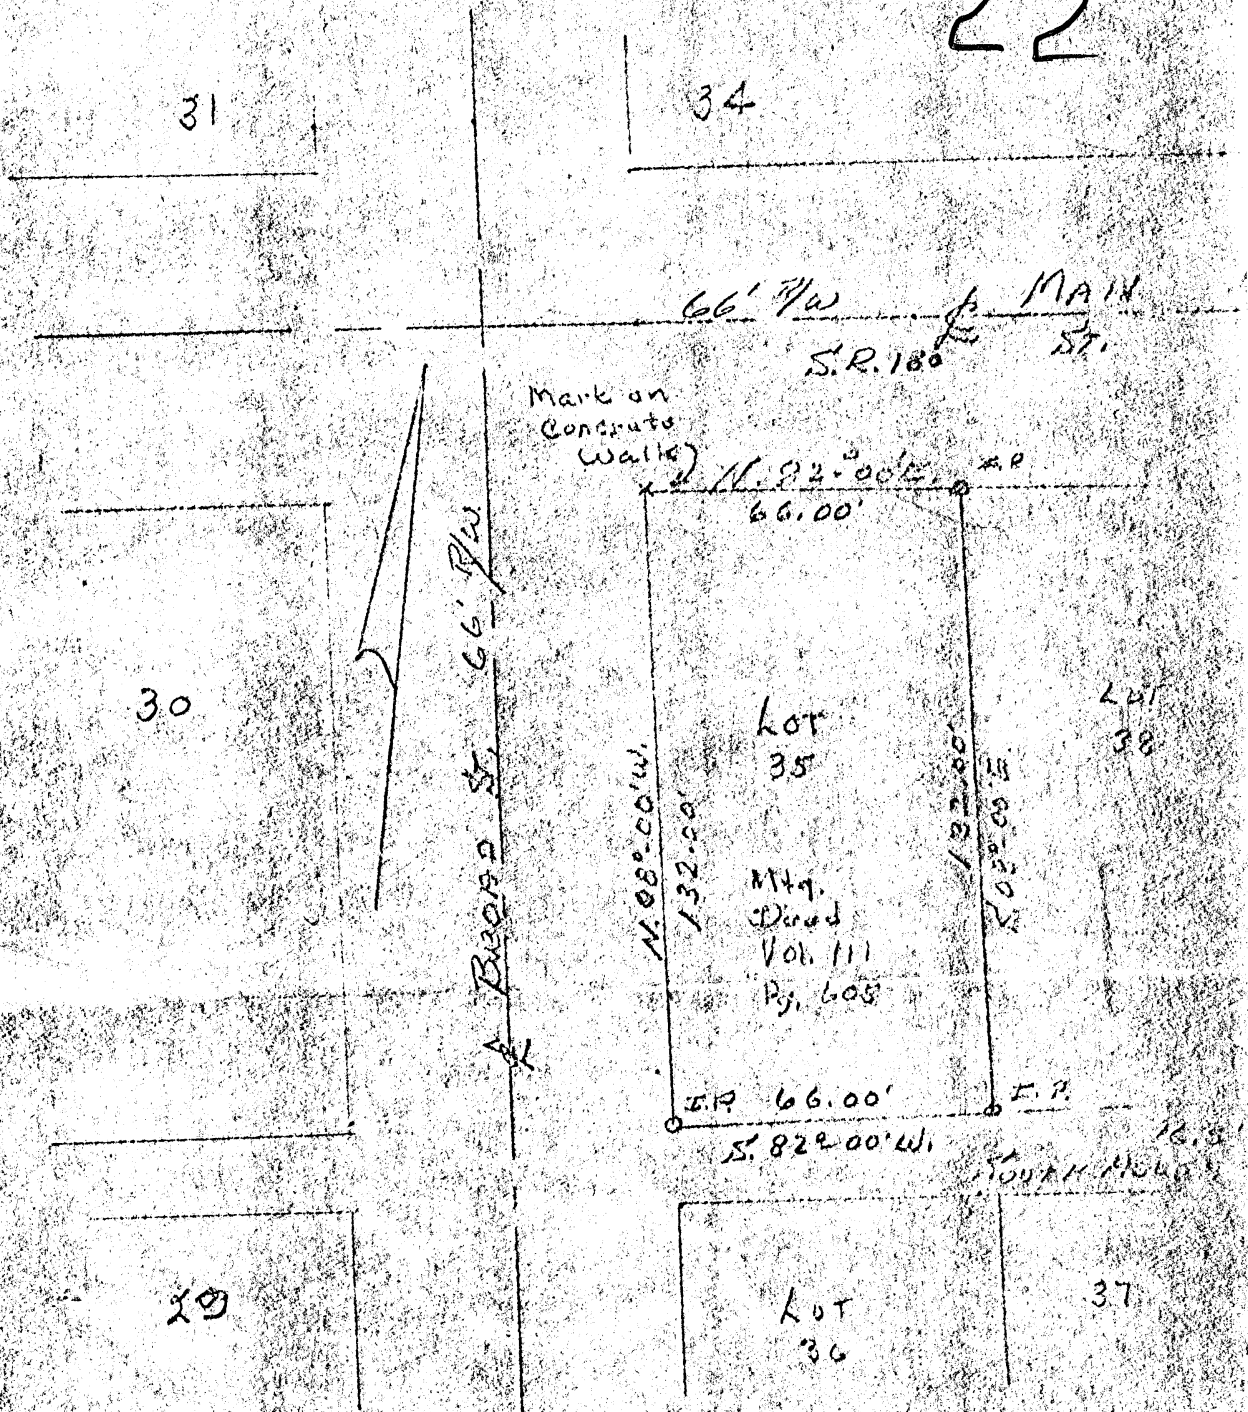 22
31
34
66' R/W
MAIN
ST.
S.R. 180
Mark on
Concrete
Walk
N. 82°00'E.
I.P.
66.00'
66' R/W
BROAD ST.
30
LOT
35
LOT
38
N. 08°-00'W.
132.00'
132.00'
S 08°-00'E
Mtg.
Deed
Vol. 111
Pg. 605
I.P. 66.00'
I.P.
S. 82°00'W.
16.5'
SOUTH
29
LOT
36
37